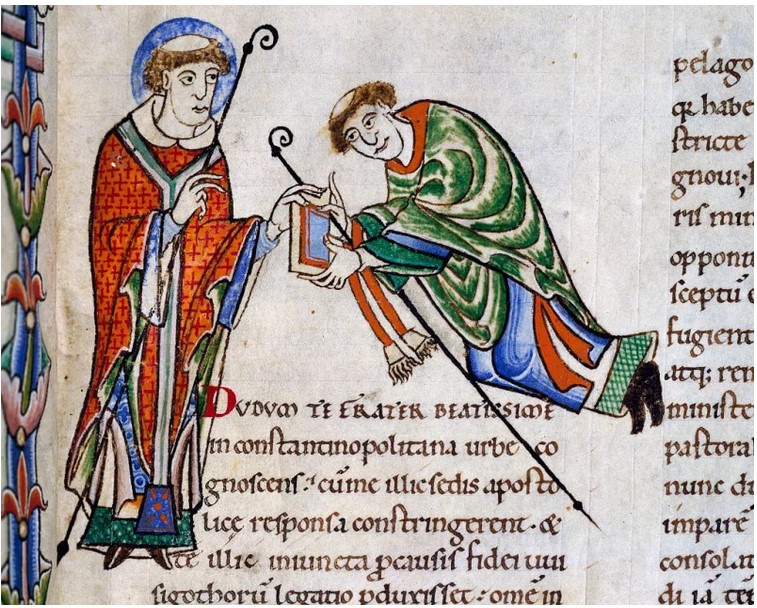 DUDUM TE FRATER BEATISSIME
in constantinopolitana urbe co
gnoscens. cū me illic sedis aposto
lice responsa constringerent. &
te illic iniuncta ꝓ causis fidei uui
sigothorū legatio ꝑduxisset. omē in
pelago
qr habe
stricte
gnoui;
ris min
opponu
sceptū
fugient
atq; rem
ministe
pastoral
nunc di
impare
consolat
di iā ter